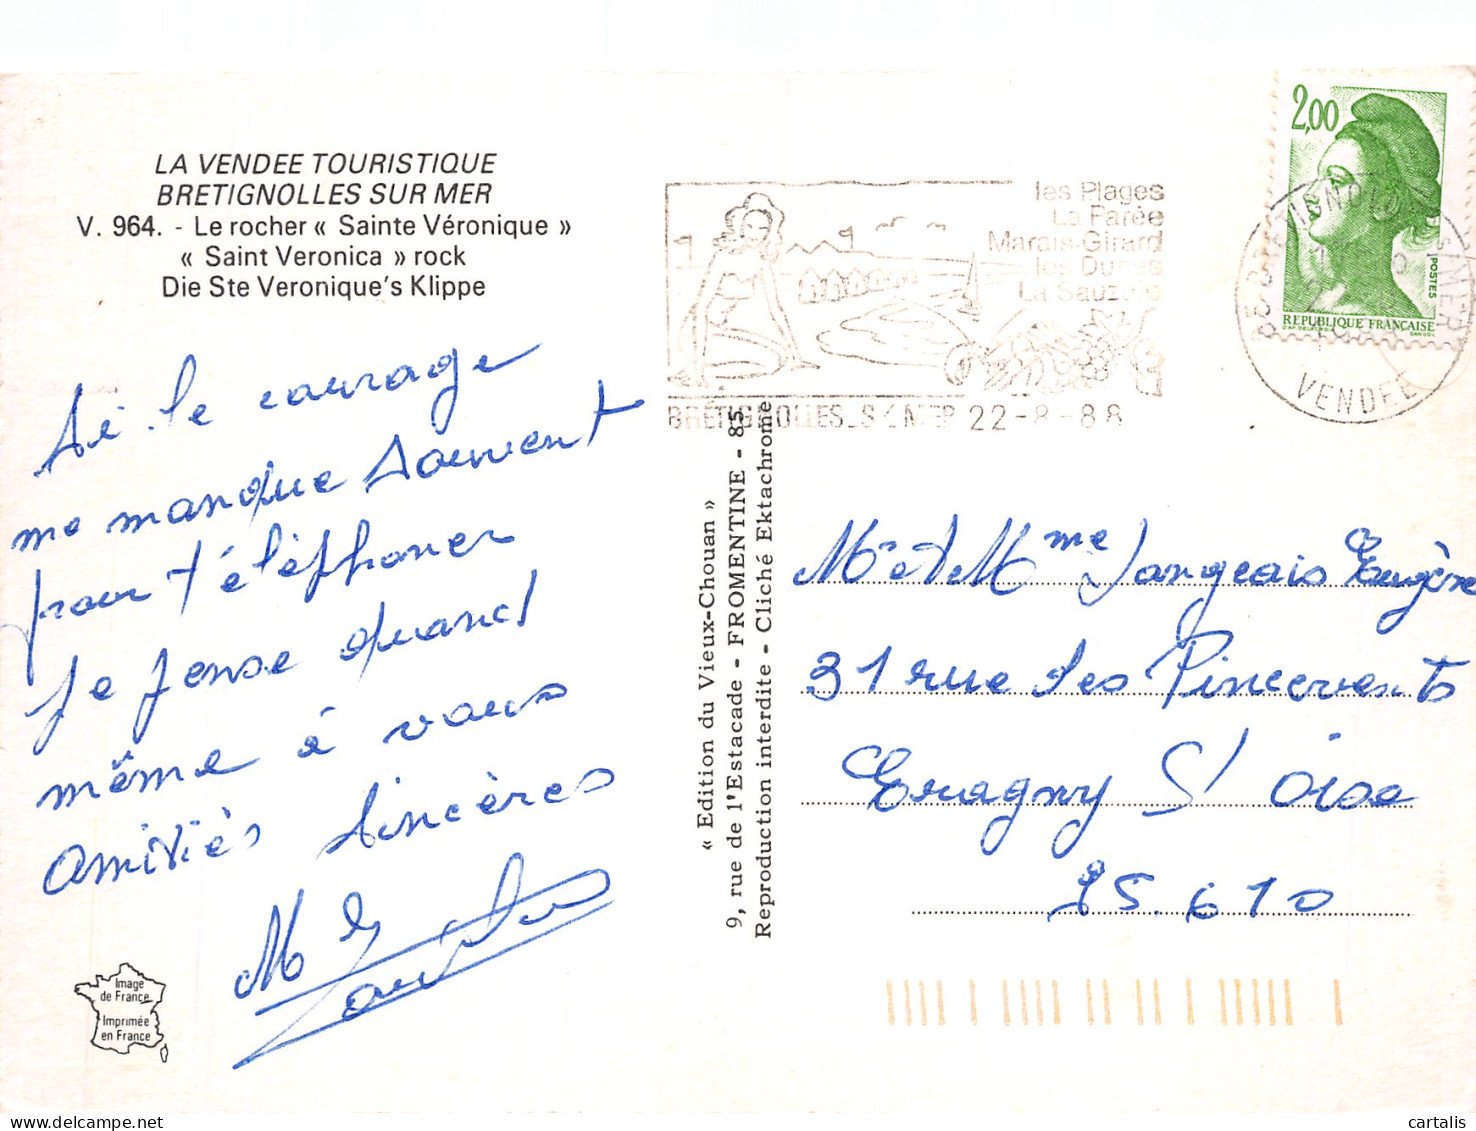 LA VENDEE TOURISTIQUE
BRETIGNOLLES SUR MER
V. 964. - Le rocher « Sainte Véronique »
« Saint Veronica » rock
Die Ste Veronique's Klippe
si le courage
me manque souvent
pour téléphoner
je pense quand
même à vous
amitiés sincères
M
Image
de France
Imprimée
en France
« Edition du Vieux-Chouan »
9, rue de l'Estacade - FROMENTINE - 85
Reproduction interdite - Cliché Ektachrome
les Plages
La Parée
Marais-Girard
les Dunes
La Sauzaie
BRETIGNOLLES S/MER 22-8-88
2,00
POSTES
REPUBLIQUE FRANÇAISE
85 BRETIGNOLLES S/MER
VENDEE
Mr et Mme Jangeais Eugène
31 rue des Pincevents
Eragny S/ Oise
95.610
cartalis